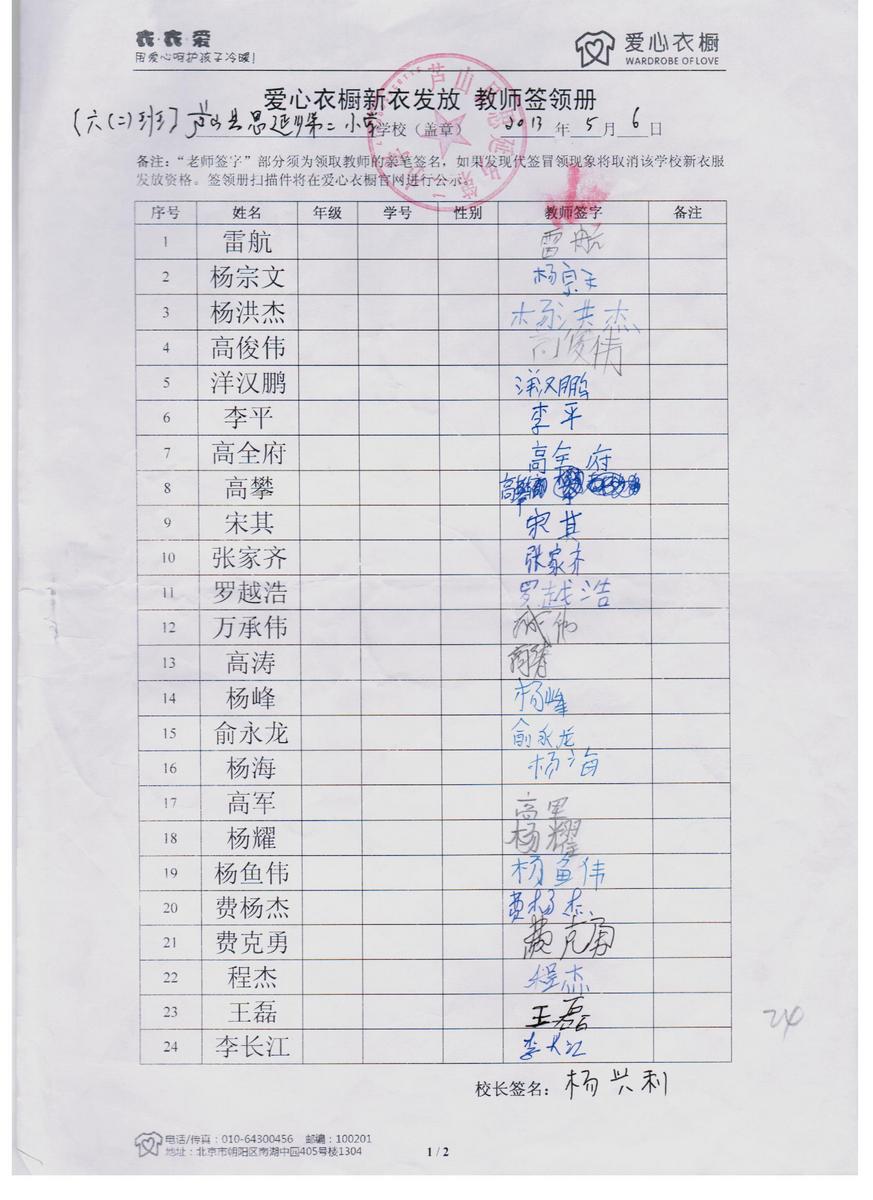 衣·衣·爱
用爱心呵护孩子冷暖!
爱心衣橱
WARDROBE OF LOVE
爱心衣橱新衣发放 教师签领册
(六(二)班) 芦山县思延乡第二小学 学校（盖章） 2013 年 5 月 6 日
备注：“老师签字”部分须为领取教师的亲笔签名，如果发现代签冒领现象将取消该学校新衣服
发放资格。签领册扫描件将在爱心衣橱官网进行公示。
序号 姓名 年级 学号 性别 教师签字 备注
1 雷航 雷航
2 杨宗文 杨宗文
3 杨洪杰 杨洪杰
4 高俊伟 高俊伟
5 洋汉鹏 洋汉鹏
6 李平 李平
7 高全府 高全府
8 高攀 高攀
9 宋其 宋其
10 张家齐 张家齐
11 罗越浩 罗越浩
12 万承伟
13 高涛 高涛
14 杨峰 杨峰
15 俞永龙 俞永龙
16 杨海 杨海
17 高军 高军
18 杨耀 杨耀
19 杨鱼伟 杨鱼伟
20 费杨杰 费杨杰
21 费克勇 费克勇
22 程杰 程杰
23 王磊 王磊
24 李长江 李长江
24
校长签名： 杨兴利
电话/传真：010-64300456 邮编：100201
地址：北京市朝阳区南湖中园405号楼1304
1 / 2